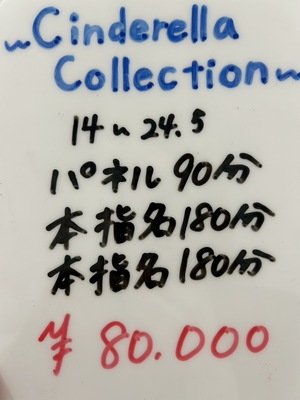 ~Cinderella
Collection~
14~24.5
パネル90分
本指名180分
本指名180分
¥80.000